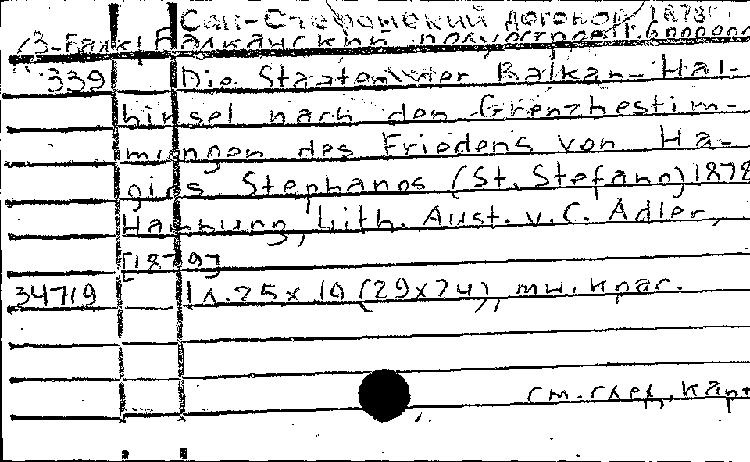 Сан-Стефанский договор, 1878
13-Балк Балканский полуостров
339 Die Staaten der Balkan-Hal-
binsel nach den Grenzbestim-
mungen des Friedens von Ha-
gios Stephanos (St. Stefano) 1878
Hamburg, Lith. Anst. v. C. Adler,
[1879]
34719 1 л. 25x19 (29x24), мн. крас.
см. след. карт